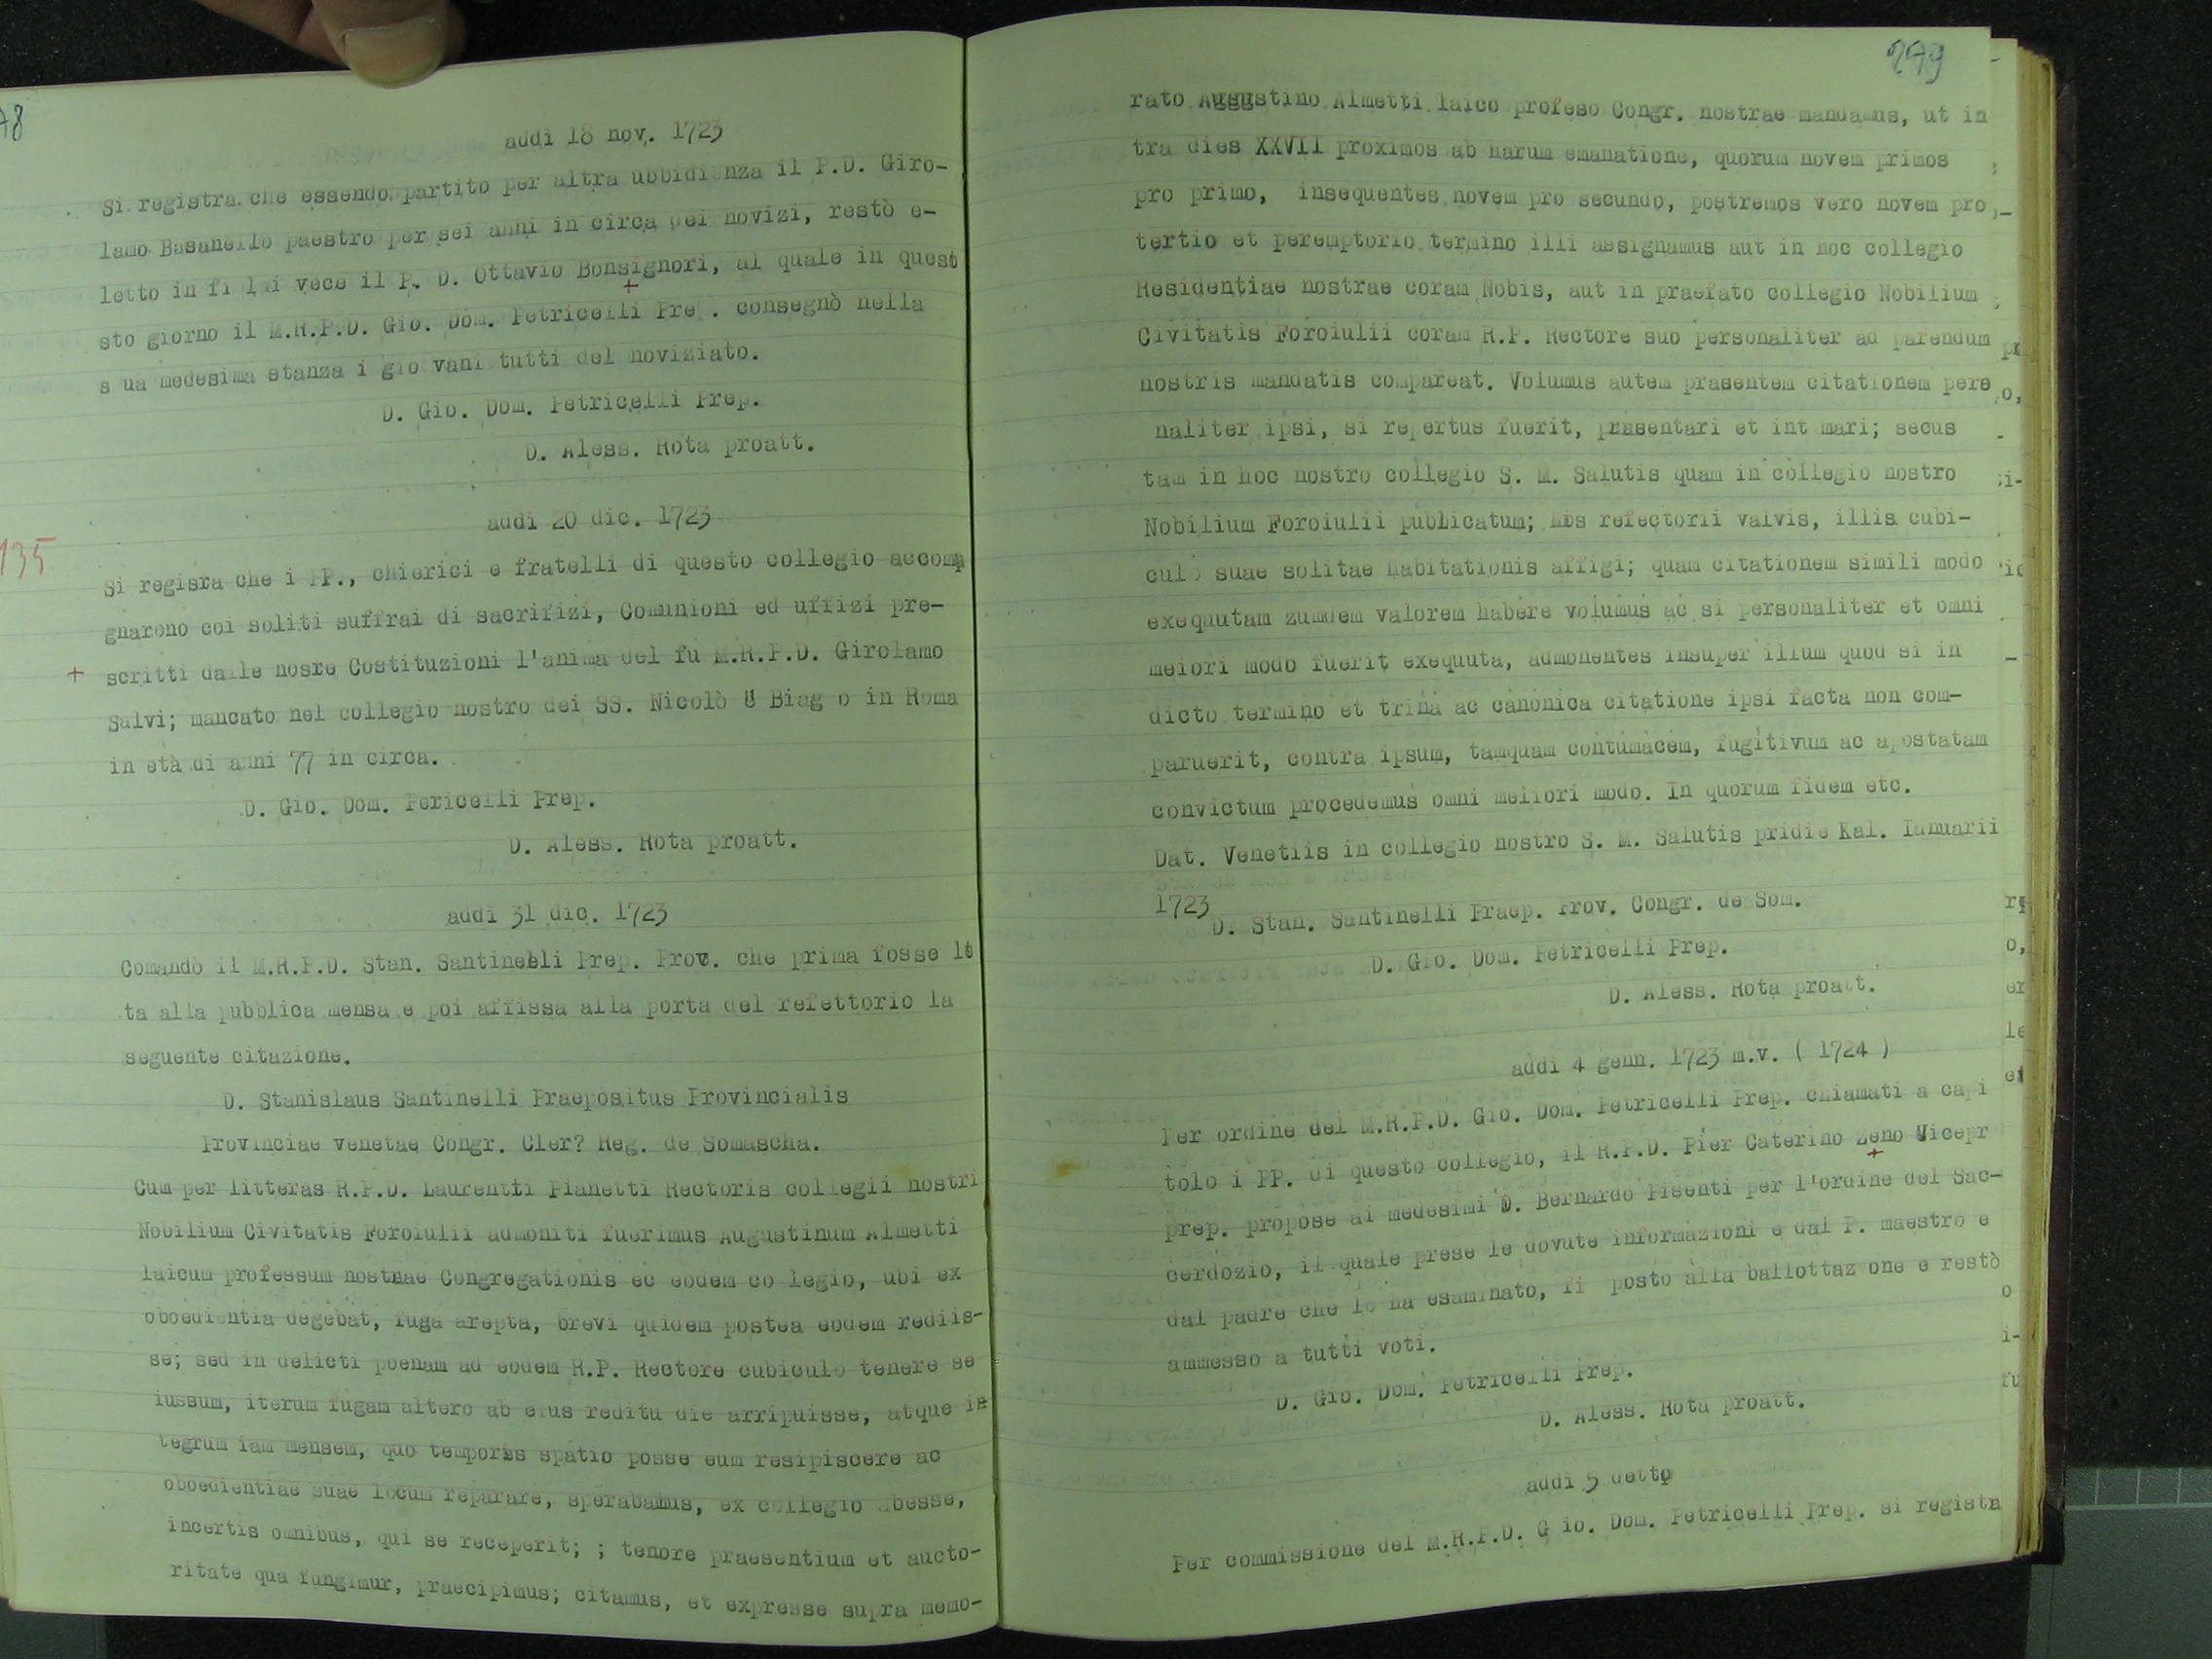 78
addì 18 nov. 1723
Si registra che essendo partito per altra ubbidi nza il P.D. Giro-
lamo Basanello paestro per sei anni in circa dei novizi, restò e-
letto in fi lui vece il P. D. Ottavio Bonsignori, al quale in quest
+
sto giorno il M.R.P.D. Gio. Dom. Petricelli Pre . consegnò nella
s ua medesima stanza i gio vani tutti del noviziato.
D. Gio. Dom. Petricelli Prep.
D. Aless. Rota proatt.
addì 20 dic. 1723
135
Si regisra che i PP., chierici e fratelli di questo collegio accomp
gnarono coi soliti suffrai di sacrifizi, Comunioni ed uffizi pre-
+ scritti dalle nosre Costituzioni l'anima del fu M.R.P.D. Girolamo
Salvi; mancato nel collegio nostro dei SS. Nicolò e Biag o in Roma
in età di anni 77 in circa.
D. Gio. Dom. Pericelli Prep.
D. Aless. Rota proatt.
addì 31 dic. 1723
Comandò il M.R.P.D. Stan. Santinelli Prep. Prov. che prima fosse le
ta alla pubblica mensa e poi affissa alla porta del refettorio la
seguente citazione.
D. Stanislaus Santinelli Praepositus Provincialis
Provinciae venetae Congr. Cler? Reg. de Somascha.
Cum per litteras R.P.D. Laurentii Pianetti Rectoris collegii nostri
Nobilium Civitatis Foroiulii admoniti fuerimus Augustinum Almetti
laicum professum nostrae Congregationis ec eodem co legio, ubi ex
oboedientia degebat, fuga arepta, brevi quidem postea eodem rediis-
se; sed in delicti poenam ad eodem R.P. Rectore cubiculo tenere se
iussum, iterum fugam altero ab eius reditu die arripuisse, atque in
tegrum iam mensem, quo temporis spatio posse eum resipiscere ac
oboedientiae suae locum reparare, sperabamus, ex collegio abesse,
incertis omnibus, qui se receperit; ; tenore praesentium et aucto-
ritate qua fungimur, praecipimus; citamus, et expresse supra memo-
279
rato Auggstino Almetti laico profeso Congr. nostrae mandamus, ut in
tra dies XXVII proximos ab harum emanatione, quorum novem primos
pro primo, insequentes novem pro secundo, postremos vero novem pro
tertio et peremptorio termino illi assignamus aut in hoc collegio
Residentiae nostrae coram Nobis, aut in praefato collegio Nobilium
Civitatis Foroiulii coram R.P. Rectore suo personaliter ad parendum
nostris mandatis compareat. Volumus autem prasentem citationem pers
naliter ipsi, si repertus fuerit, prasentari et int mari; secus
tam in hoc nostro collegio S. M. Salutis quam in collegio nostro
Nobilium Foroiulii publicatum; hos refectorii valvis, illis cubi-
culo suae solitae habitationis affigi; quam citationem simili modo
exequutam zumdem valorem habere volumus ac si personaliter et omni
meiori modo fuerit exequuta, admonentes insuper illum quod si in
dicto termino et trina ac canonica citatione ipsi facta non com-
paruerit, contra ipsum, tamquam contumacem, fugitivum ac apostatam
convictum procedemus omni meliori modo. In quorum fidem etc.
Dat. Venetiis in collegio nostro S. M. Salutis pridie Kal. Ianuarii
1723
D. Stan. Santinelli Praep. Prov. Congr. de Som.
D. Gio. Dom. Petricelli Prep.
D. Aless. Rota proatt.
addì 4 genn. 1723 m.v. ( 1724 )
Per ordine del M.R.P.D. Gio. Dom. Petricelli Prep. chiamati a capi
tolo i PP. di questo collegio, il R.P.D. Pier Caterino Zeno Vicepr
+
prep. propose ai medesimi D. Bernardo Pisenti per l'ordine del Sac-
cerdozio, il quale prese le dovute informazioni e dal P. maestro e
dal padre che lo ha esaminato, fi posto alla ballottaz one e restò
ammesso a tutti voti.
D. Gio. Dom. Petricelli Prep.
D. Aless. Rota proatt.
addì 5 detto
Per commissione del M.R.P.D. G io. Dom. Petricelli Prep. si registra